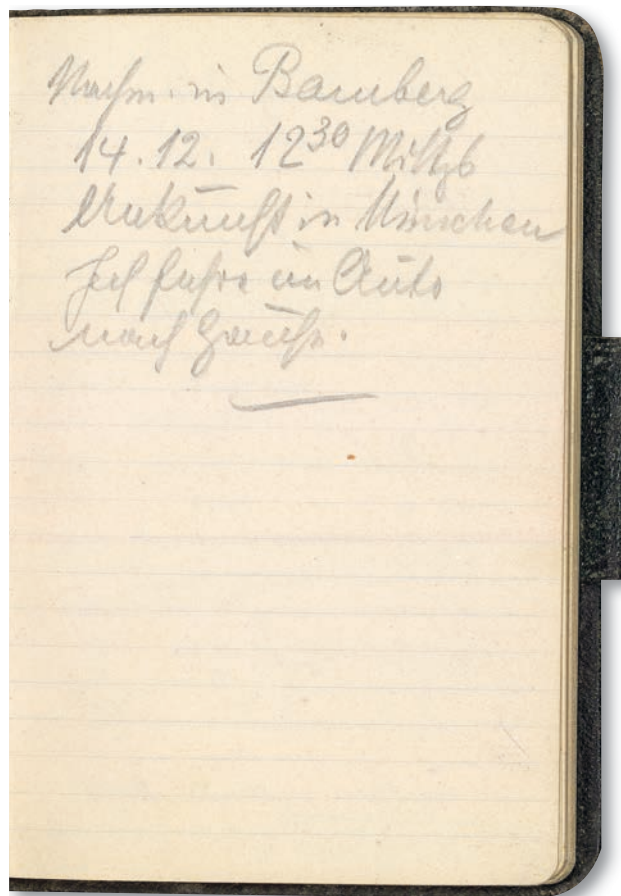 Nachm. in Bamberg
14.12. 12³⁰ Mittgs
Ankunft in München
Ich fahre im Auto
nach Hause.